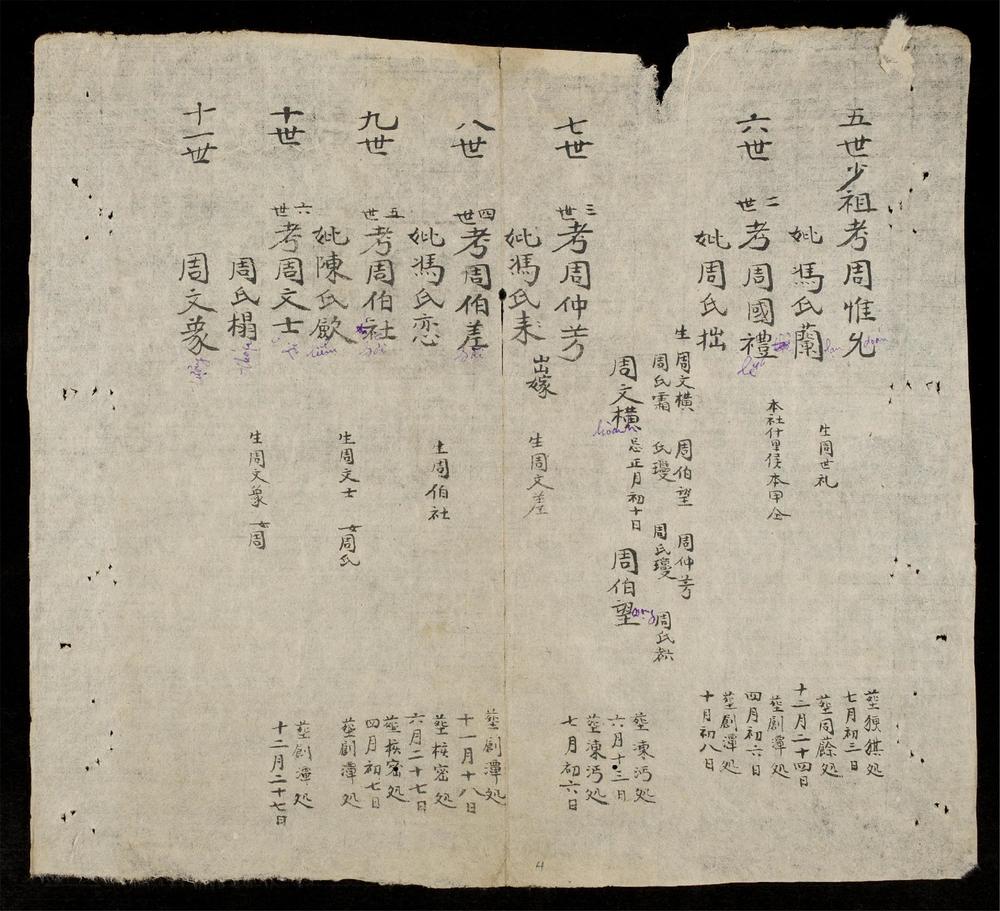 五世少祖考周惟允
妣馮氏蘭
生周世礼
塟狼猉処
七月初三日
六世
二世考周國禮
妣周氏拙
本社什里侯本甲仝
塟同蔭処
十二月二十四日
塟創潭処
四月初六日
塟創潭処
十月初八日
生周文橫 周伯望 周仲芳
周氏霜 氏瓊 周氏瓊 周氏
周文橫 忌正月初十日 周伯望
七世
三世考周仲芳
妣馮氏耒 出嫁
生周文差
塟凍沔処
六月十三日
塟凍沔処
七月初六日
八世
四世考周伯差
妣馮氏恋
生周伯社
塟創潭処
十一月十八日
塟核密処
六月二十七日
九世
五世考周伯社
妣陳氏
生周文士 女周氏
塟核密処
四月初七日
塟創潭処
十世
六世考周文士
周氏榻
生周文象 女周
塟創潭処
十二月二十七日
十一世
周文象
4